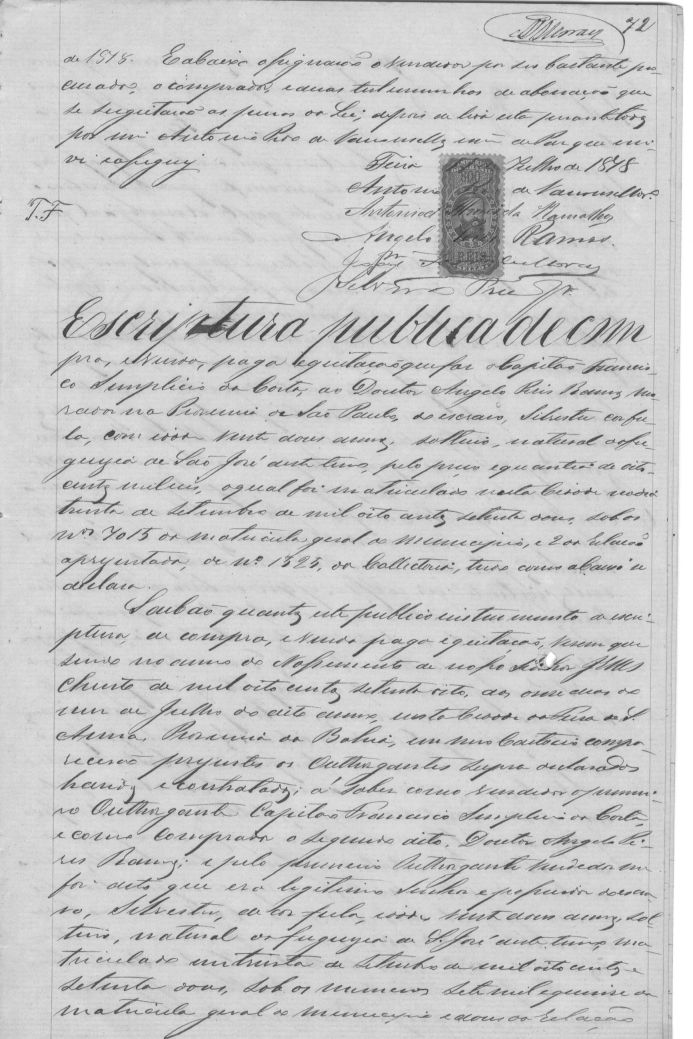 72
de 1878. E abaixo assignarão o vendedor por seu bastante pro-
curador, o comprador, e duas testemunhas de abonação que
se sugeitarão as penas da Lei; depois de lida esta perante todos
por mim Antonio de Vasconcellos que
vi e assignei
Feira Julho de 1878
Antonio de Vasconcellos
T. F
Ramalho
Angelo Ramos
Escriptura publica de com
pra, e venda, paga e quitação que faz o Capitão Francis-
co Simplicio da Costa, ao Doutor Angelo Pires Ramos, mo-
rador na Provincia de São Paulo, do escravo, Silvestre, cor fu-
la, com idade vinte dous annos, solteiro, natural da fre-
guezia de São José deste termo, pelo preço e quantia de oito
centos mil reis, o qual foi matriculado nesta Cidade no dia
trinta de Setembro de mil oito centos setenta dous, sob os
nos 7015 da matricula geral do municipio, e 2 da Relação
apresentada, de no 1325, da Collectoria, tudo como abaixo se
declara.
Saibão quantos este publico instrumento de escri-
ptura, de compra, e venda paga e quitação, virem que
sendo no anno do Nascimento de nosso Senhor JESUS
Christo de mil oito centos setenta oito, aos onse dias do
mez de Julho do dito anno, nesta Cidade da Feira de S.
Anna, Provincia da Bahia, em meo Cartorio compa-
recerão prezentes os Outhorgantes supra declarados
havidos e contratados; á saber como vendedor o primei-
ro Outhorgante Capitão Francisco Simplicio da Costa,
e como comprador o segundo dito, Doutor Angelo Pi-
res Ramos; e pelo primeiro Outhorgante vendedor me
foi dito que era legitimo Senhor e possuidor do escra-
vo, Silvestre, de cor fula, idade vinte dous annos, sol-
teiro, natural da freguezia de S. José deste termo ma-
triculado em trinta de Setembro de mil oito centos e
setenta dous, sob os numeros sete mil e quinse da
matricula geral do municipio e dous da Relação